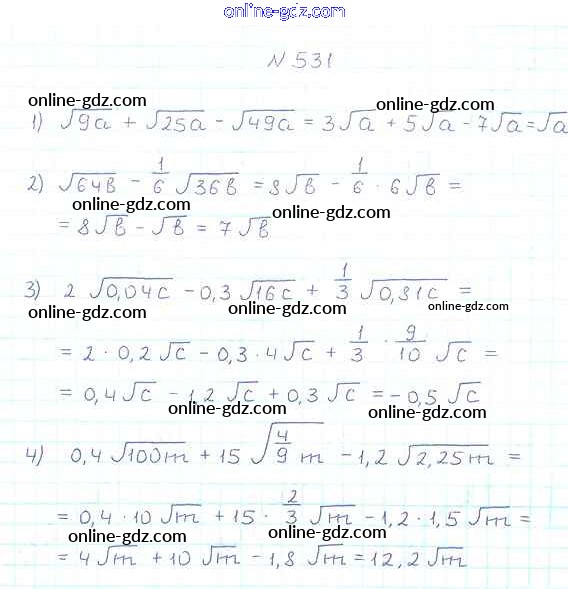 online-gdz.com
N 531
online-gdz.com online-gdz.com
1) √9a + √25a - √49a = 3√a + 5√a - 7√a = √a
2) √64в - 1/6 √36в = 8√в - 1/6 · 6√в =
online-gdz.com online-gdz.com
= 8√в - √в = 7√в
3) 2 √0,04c - 0,3 √16c + 1/3 √0,81c =
online-gdz.com online-gdz.com online-gdz.com
= 2 · 0,2 √c - 0,3 · 4√c + 1/3 · 9/10 √c =
= 0,4√c - 1,2 √c + 0,3 √c = - 0,5 √c
online-gdz.com online-gdz.com
4) 0,4 √100m + 15 √4/9 m - 1,2 √2,25m =
= 0,4 · 10 √m + 15 · 2/3 √m - 1,2 · 1,5 √m =
online-gdz.com online-gdz.com
= 4√m + 10 √m - 1,8 √m = 12,2√m